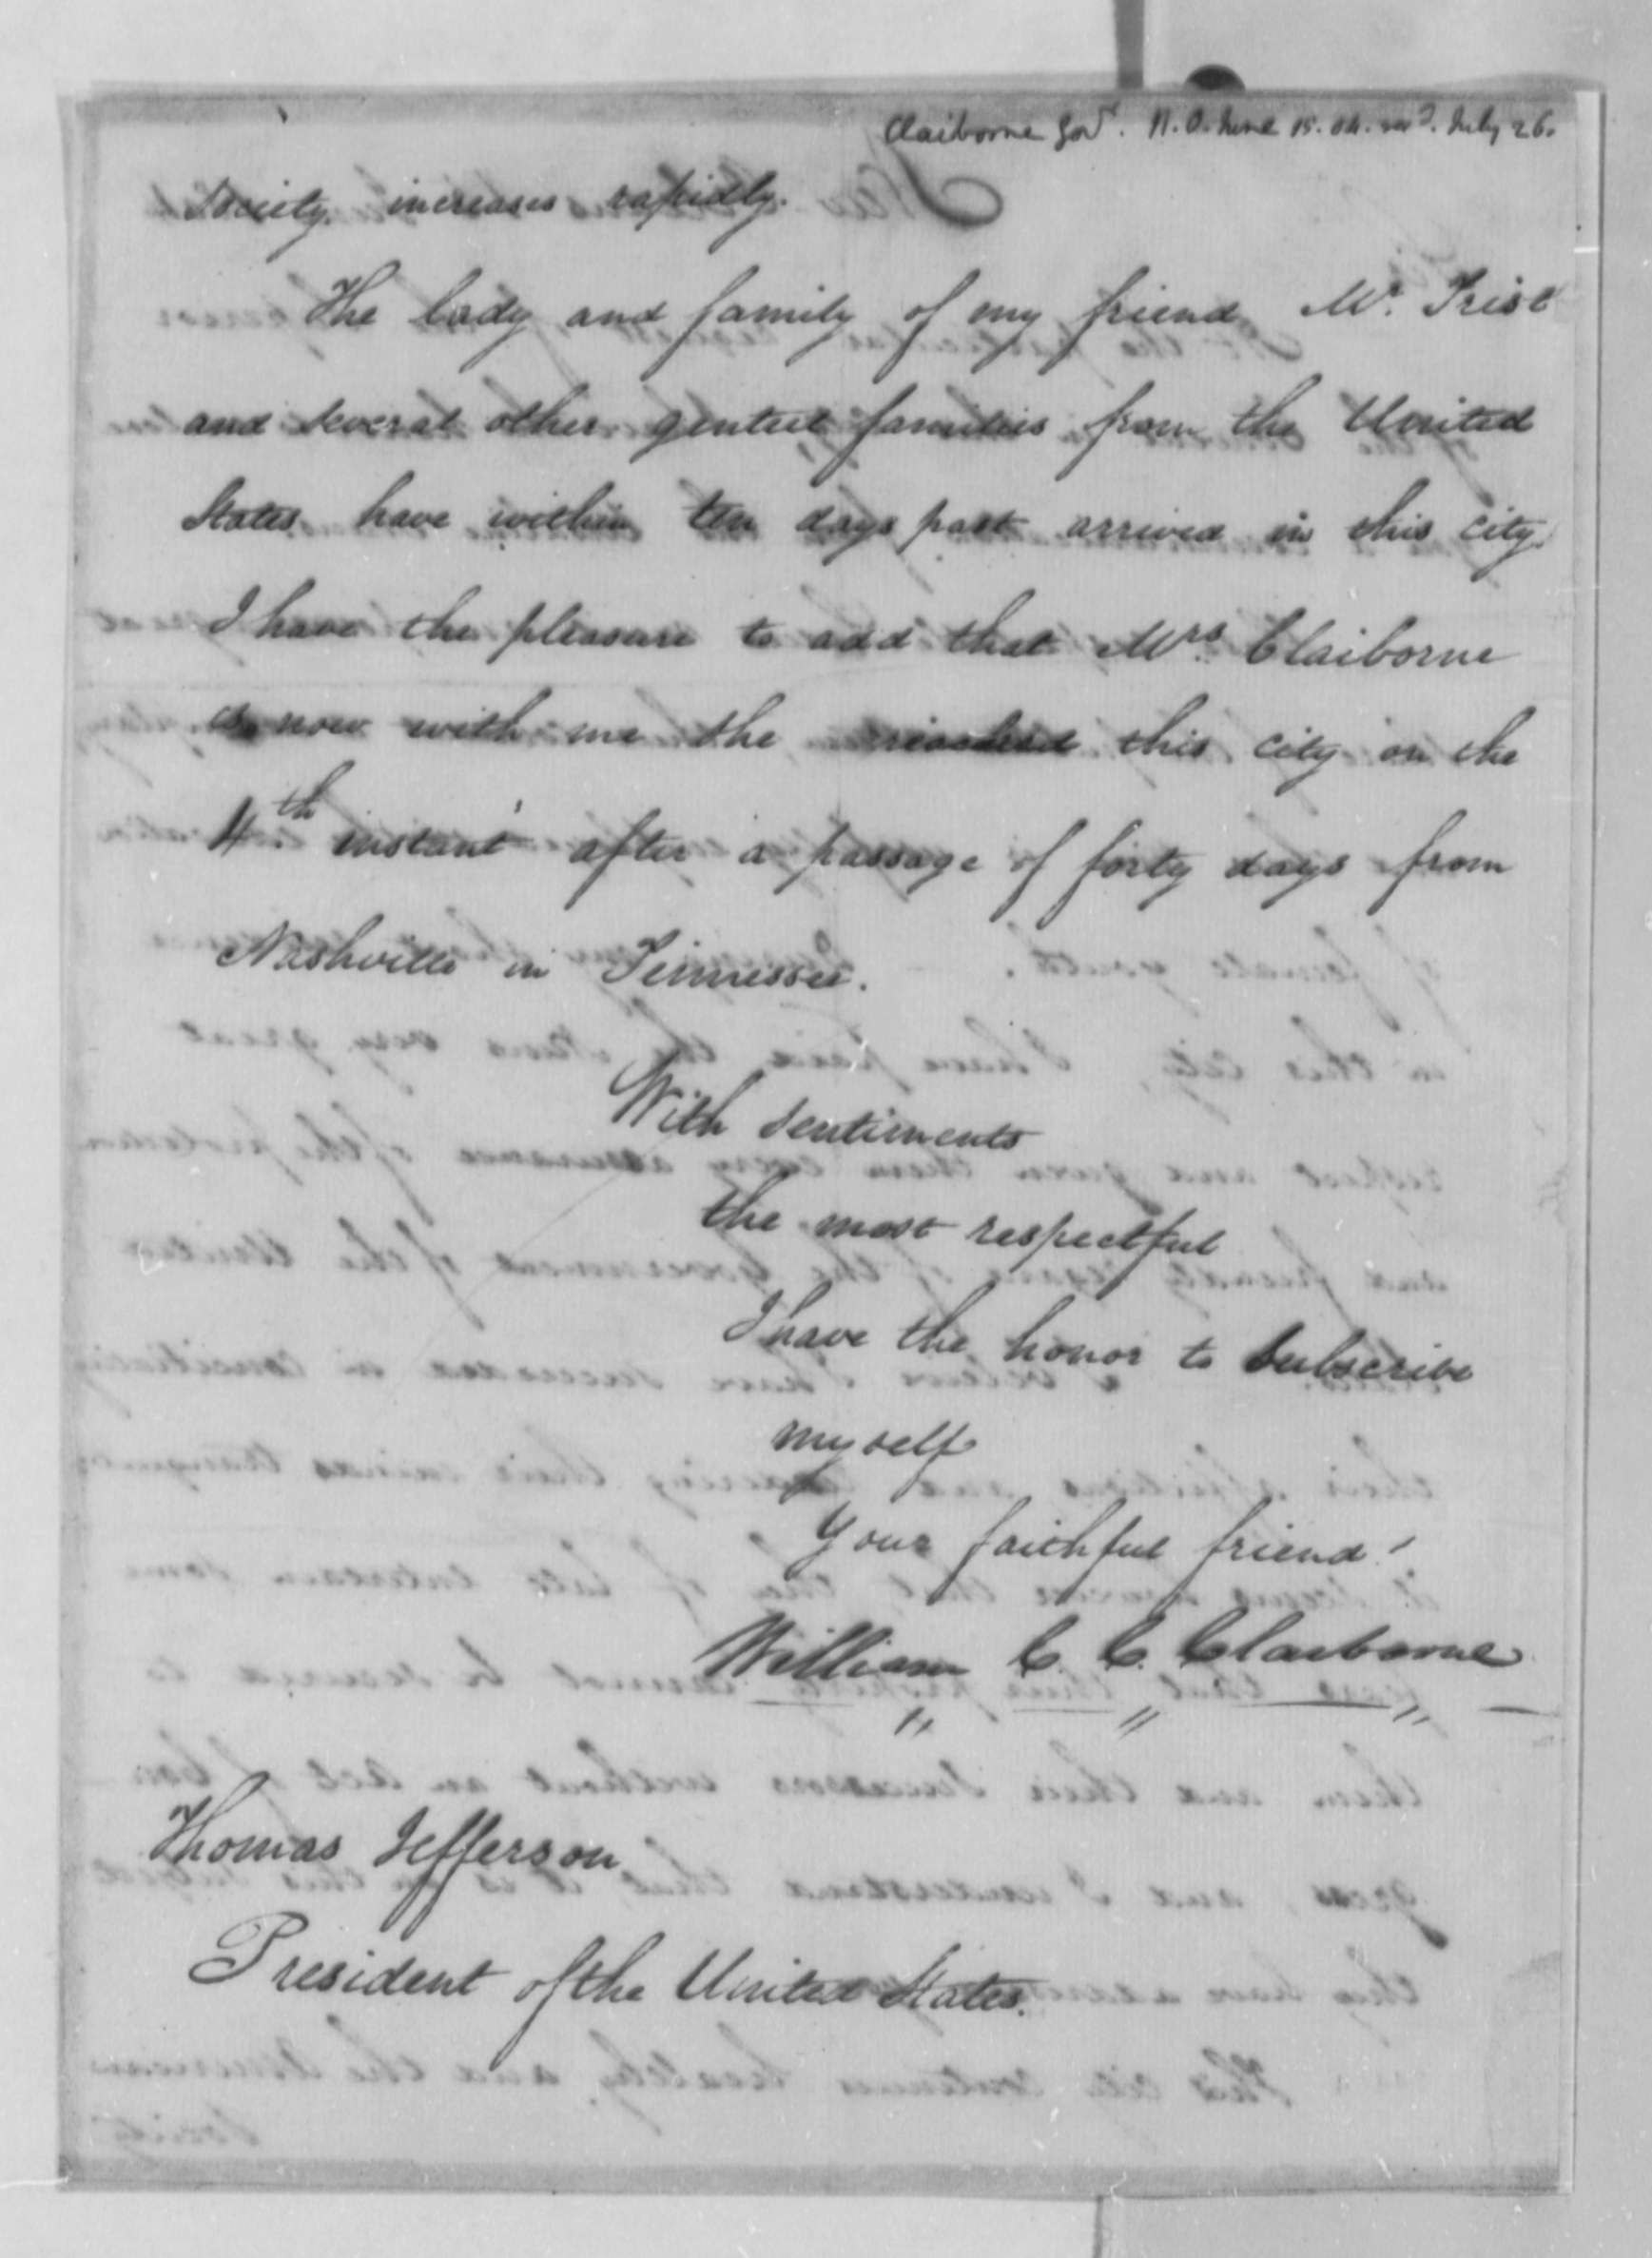 Claiborne Gov<sup>r</sup>. N.O. June 15. 04. rec<sup>d</sup>. July 26.
Society increases rapidly.
The lady and family of my friend Mr. Trist
and several other genteel families from the United
States have within ten days past arrived in this city.
I have the pleasure to add that Mrs. Claiborne
is now with me she reached this city on the
11th instant after a passage of forty days from
Nashville in Tennessee.
With sentiments
the most respectful
I have the honor to subscribe
myself
Your faithful friend
William C. C. Claiborne
Thomas Jefferson
President of the United States.